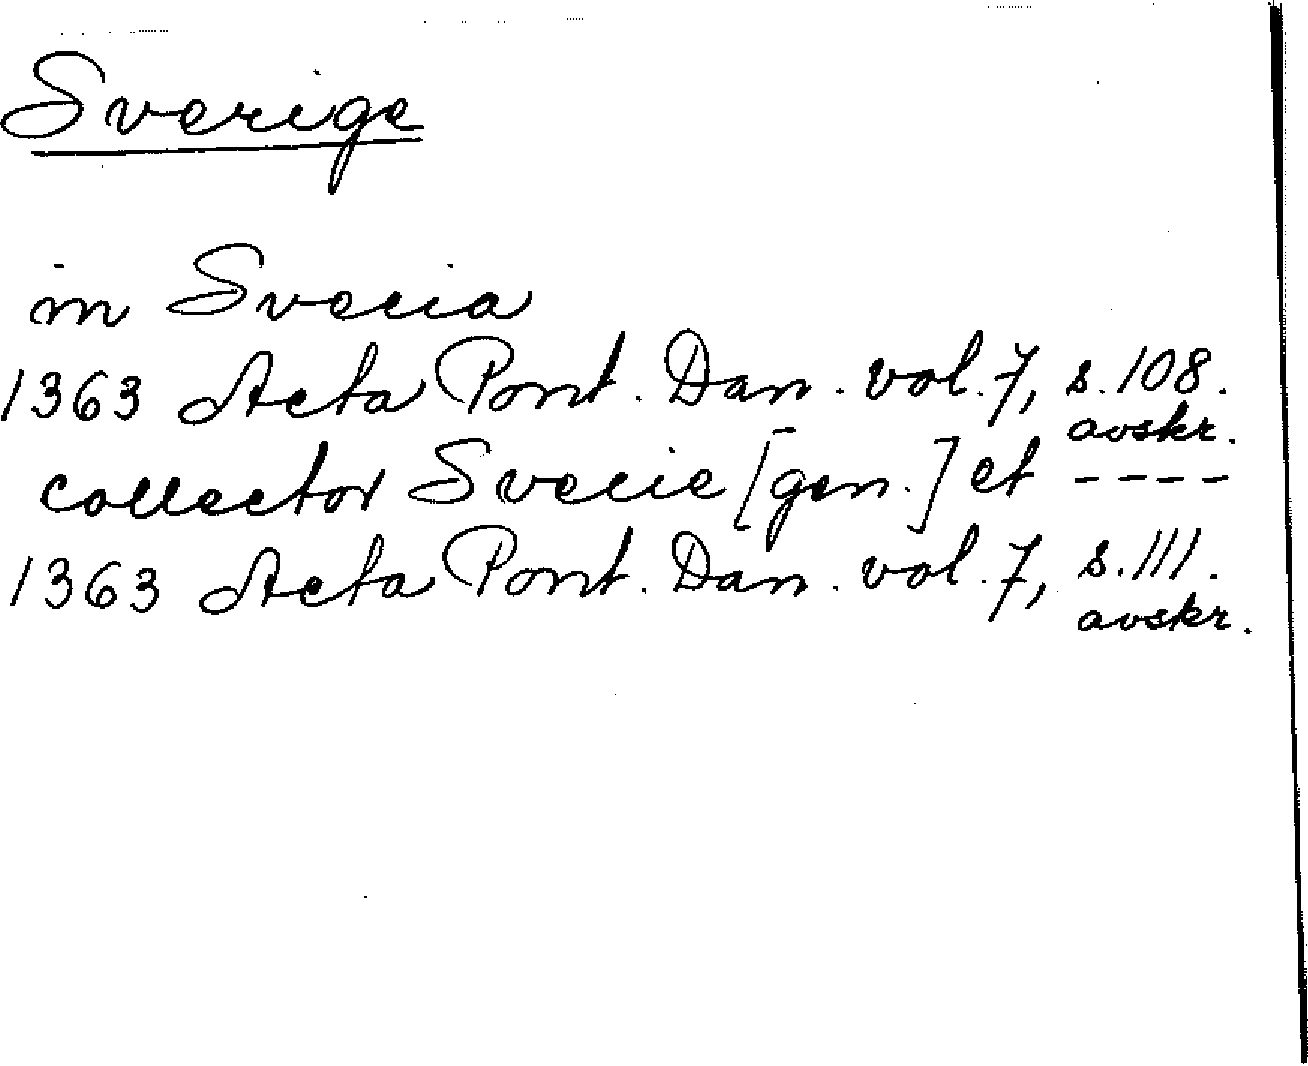 Sverige
in Svecia
1363 Acta Pont. Dan. vol. 7, s. 108.
avskr.
collector Svecie [gen.] et - - - -
1363 Acta Pont. Dan. vol. 7, s. 111.
avskr.